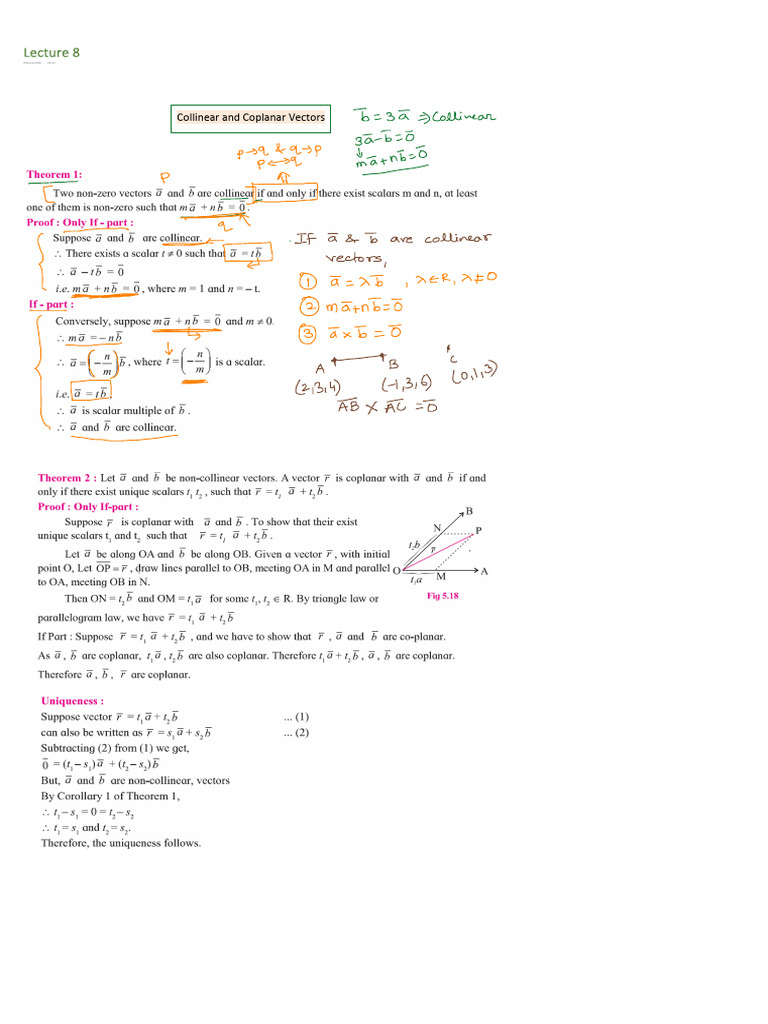 Lecture 8
Collinear and Coplanar Vectors
b̅ = 3a̅ ⇒ Collinear
3a̅ - b̅ = 0̅
↓
ma̅ + nb̅ = 0̅
p→q & q→p
p↔q
⇑
Theorem 1:
p
Two non-zero vectors a̅ and b̅ are collinear if and only if there exist scalars m and n, at least
one of them is non-zero such that m a̅ + n b̅ = 0̅ .
q
Proof : Only If - part :
Suppose a̅ and b̅ are collinear.
∴ There exists a scalar t ≠ 0 such that a̅ = t b̅
∴ a̅ – t b̅ = 0̅
i.e. m a̅ + n b̅ = 0̅ , where m = 1 and n = – t.
If - part :
Conversely, suppose m a̅ + n b̅ = 0̅ and m ≠ 0.
∴ m a̅ = – n b̅
∴ a̅ = (– n/m) b̅ , where t = (– n/m) is a scalar.
i.e. a̅ = t b̅ .
∴ a̅ is scalar multiple of b̅ .
∴ a̅ and b̅ are collinear.
. If a̅ & b̅ are collinear
vectors,
① a̅ = λb̅ , λ∈R, λ≠0
② ma̅ + nb̅ = 0̅
③ a̅ × b̅ = 0̅
A B C
(2,3,4) (-1,3,6) (0,1,3)
A̅B̅ × A̅C̅ = 0̅
Theorem 2 : Let a̅ and b̅ be non-collinear vectors. A vector r̅ is coplanar with a̅ and b̅ if and
only if there exist unique scalars t₁ t₂ , such that r̅ = t₁ a̅ + t₂ b̅ .
Proof : Only If-part :
Suppose r̅ is coplanar with a̅ and b̅ . To show that their exist
unique scalars t₁ and t₂ such that r̅ = t₁ a̅ + t₂ b̅ .
Let a̅ be along OA and b̅ be along OB. Given a vector r̅ , with initial
point O, Let O̅P̅ = r̅ , draw lines parallel to OB, meeting OA in M and parallel
to OA, meeting OB in N.
Then ON = t₂ b̅ and OM = t₁ a̅ for some t₁, t₂ ∈ R. By triangle law or
parallelogram law, we have r̅ = t₁ a̅ + t₂ b̅
B
N
P
t₂b
r̅
O
M
A
t₁a
Fig 5.18
If Part : Suppose r̅ = t₁ a̅ + t₂ b̅ , and we have to show that r̅ , a̅ and b̅ are co-planar.
As a̅ , b̅ are coplanar, t₁ a̅ , t₂ b̅ are also coplanar. Therefore t₁ a̅ + t₂ b̅ , a̅ , b̅ are coplanar.
Therefore a̅ , b̅ , r̅ are coplanar.
Uniqueness :
Suppose vector r̅ = t₁ a̅ + t₂ b̅ ... (1)
can also be written as r̅ = s₁ a̅ + s₂ b̅ ... (2)
Subtracting (2) from (1) we get,
0̅ = (t₁ – s₁) a̅ + (t₂ – s₂) b̅
But, a̅ and b̅ are non-collinear, vectors
By Corollary 1 of Theorem 1,
∴ t₁ – s₁ = 0 = t₂ – s₂
∴ t₁ = s₁ and t₂ = s₂.
Therefore, the uniqueness follows.